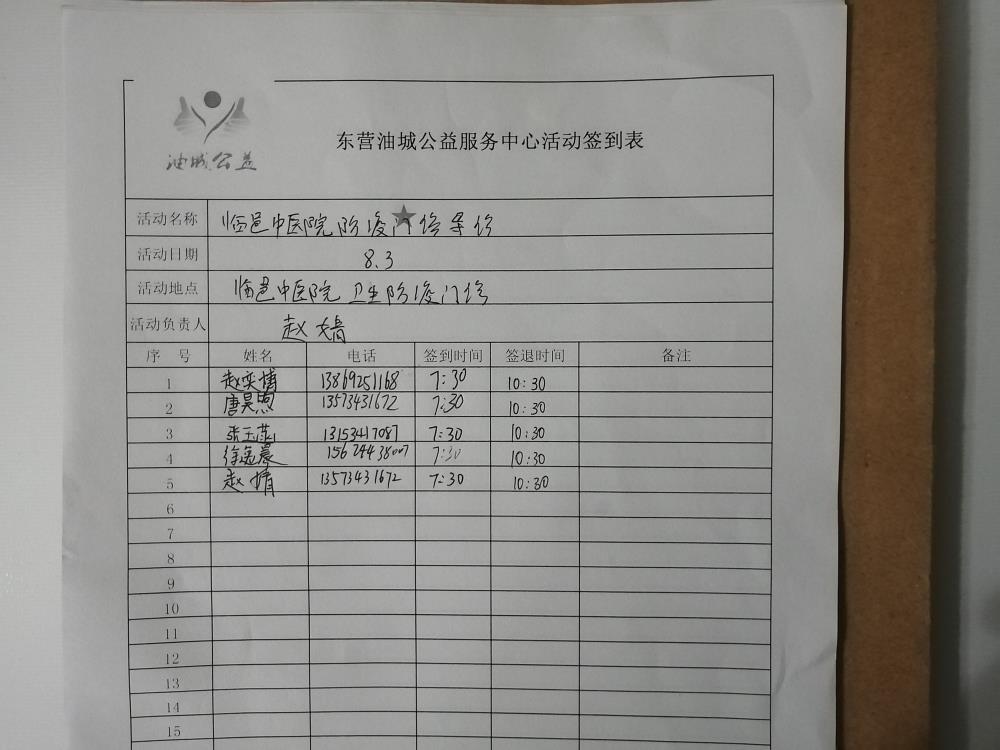 油城公益
东营油城公益服务中心活动签到表
活动名称 临邑中医院防疫门诊导诊
活动日期 8.3
活动地点 临邑中医院卫生防疫门诊
活动负责人 赵婧
序号 姓名 电话 签到时间 签退时间 备注
1 赵奕博 13869251168 7:30 10:30
2 唐昊煦 13573431672 7:30 10:30
3 张玉燕 13153417087 7:30 10:30
4 徐逸晨 7:30 10:30
5 赵婧 13573431672 7:30 10:30
6
7
8
9
10
11
12
13
14
15